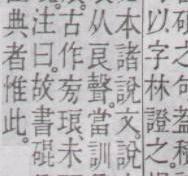 之可蓋
以字林證之
本諸說文說
从艮聲。當訓
古作珢未
注曰。故書硍
典者惟此。